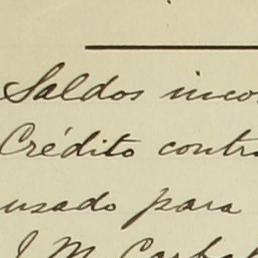 Saldos inco
Crédito contra
usado para
J. M. Carba